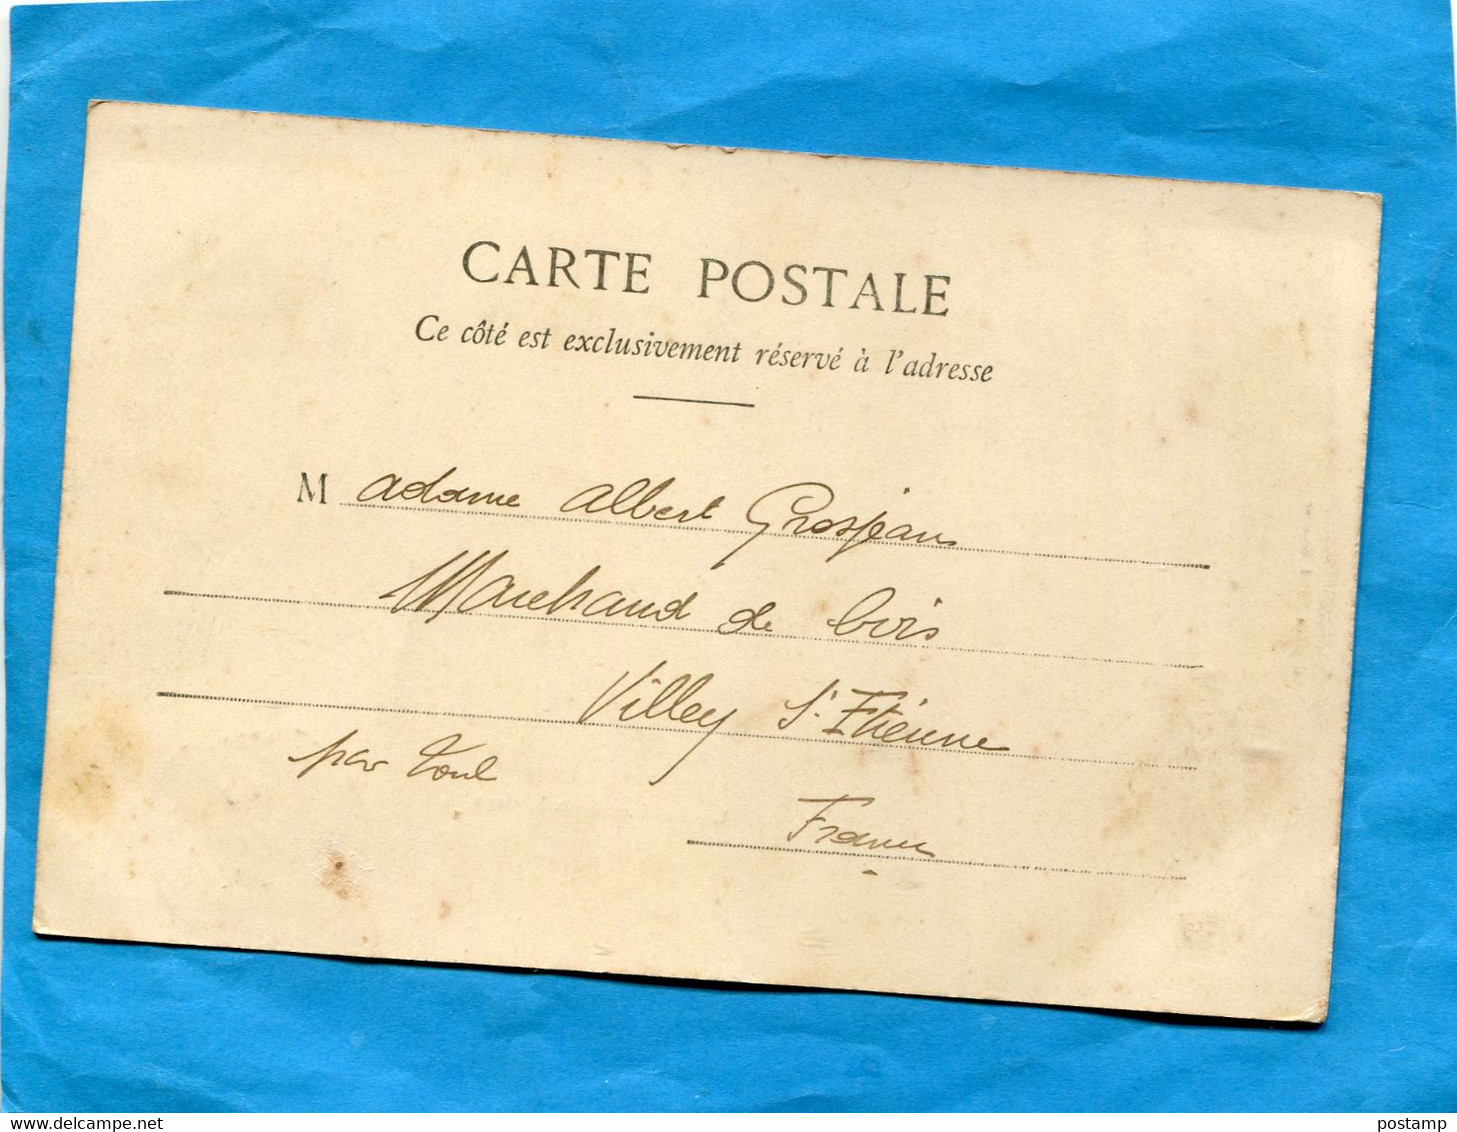 CARTE POSTALE
Ce côté est exclusivement réservé à l'adresse
Madame Albert Grosjean
Marchand de bois
Villey St Etienne
par Toul
France
www.delcampe.net
postamp